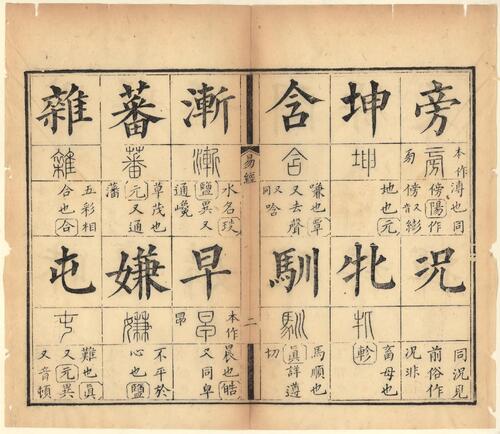 旁
旁
本作
溥也同
傍陽作
况
同況見
前俗作
況非
坤
坤
地也元
牝
牝
畜母也
軫
含
含
嗛也覃
又去聲
又
同唅
馴
馴
馬順也
真詳遵
切
易經
二
漸
漸
水名琰
鹽異又
通巉
早
本作
晨也皓
又同皁
蕃
蕃
草茂也
元又通
藩
嫌
嫌
不平於
心也鹽
雜
雜
五彩相
合也合
屯
屯
難也真
又元異
又音頓